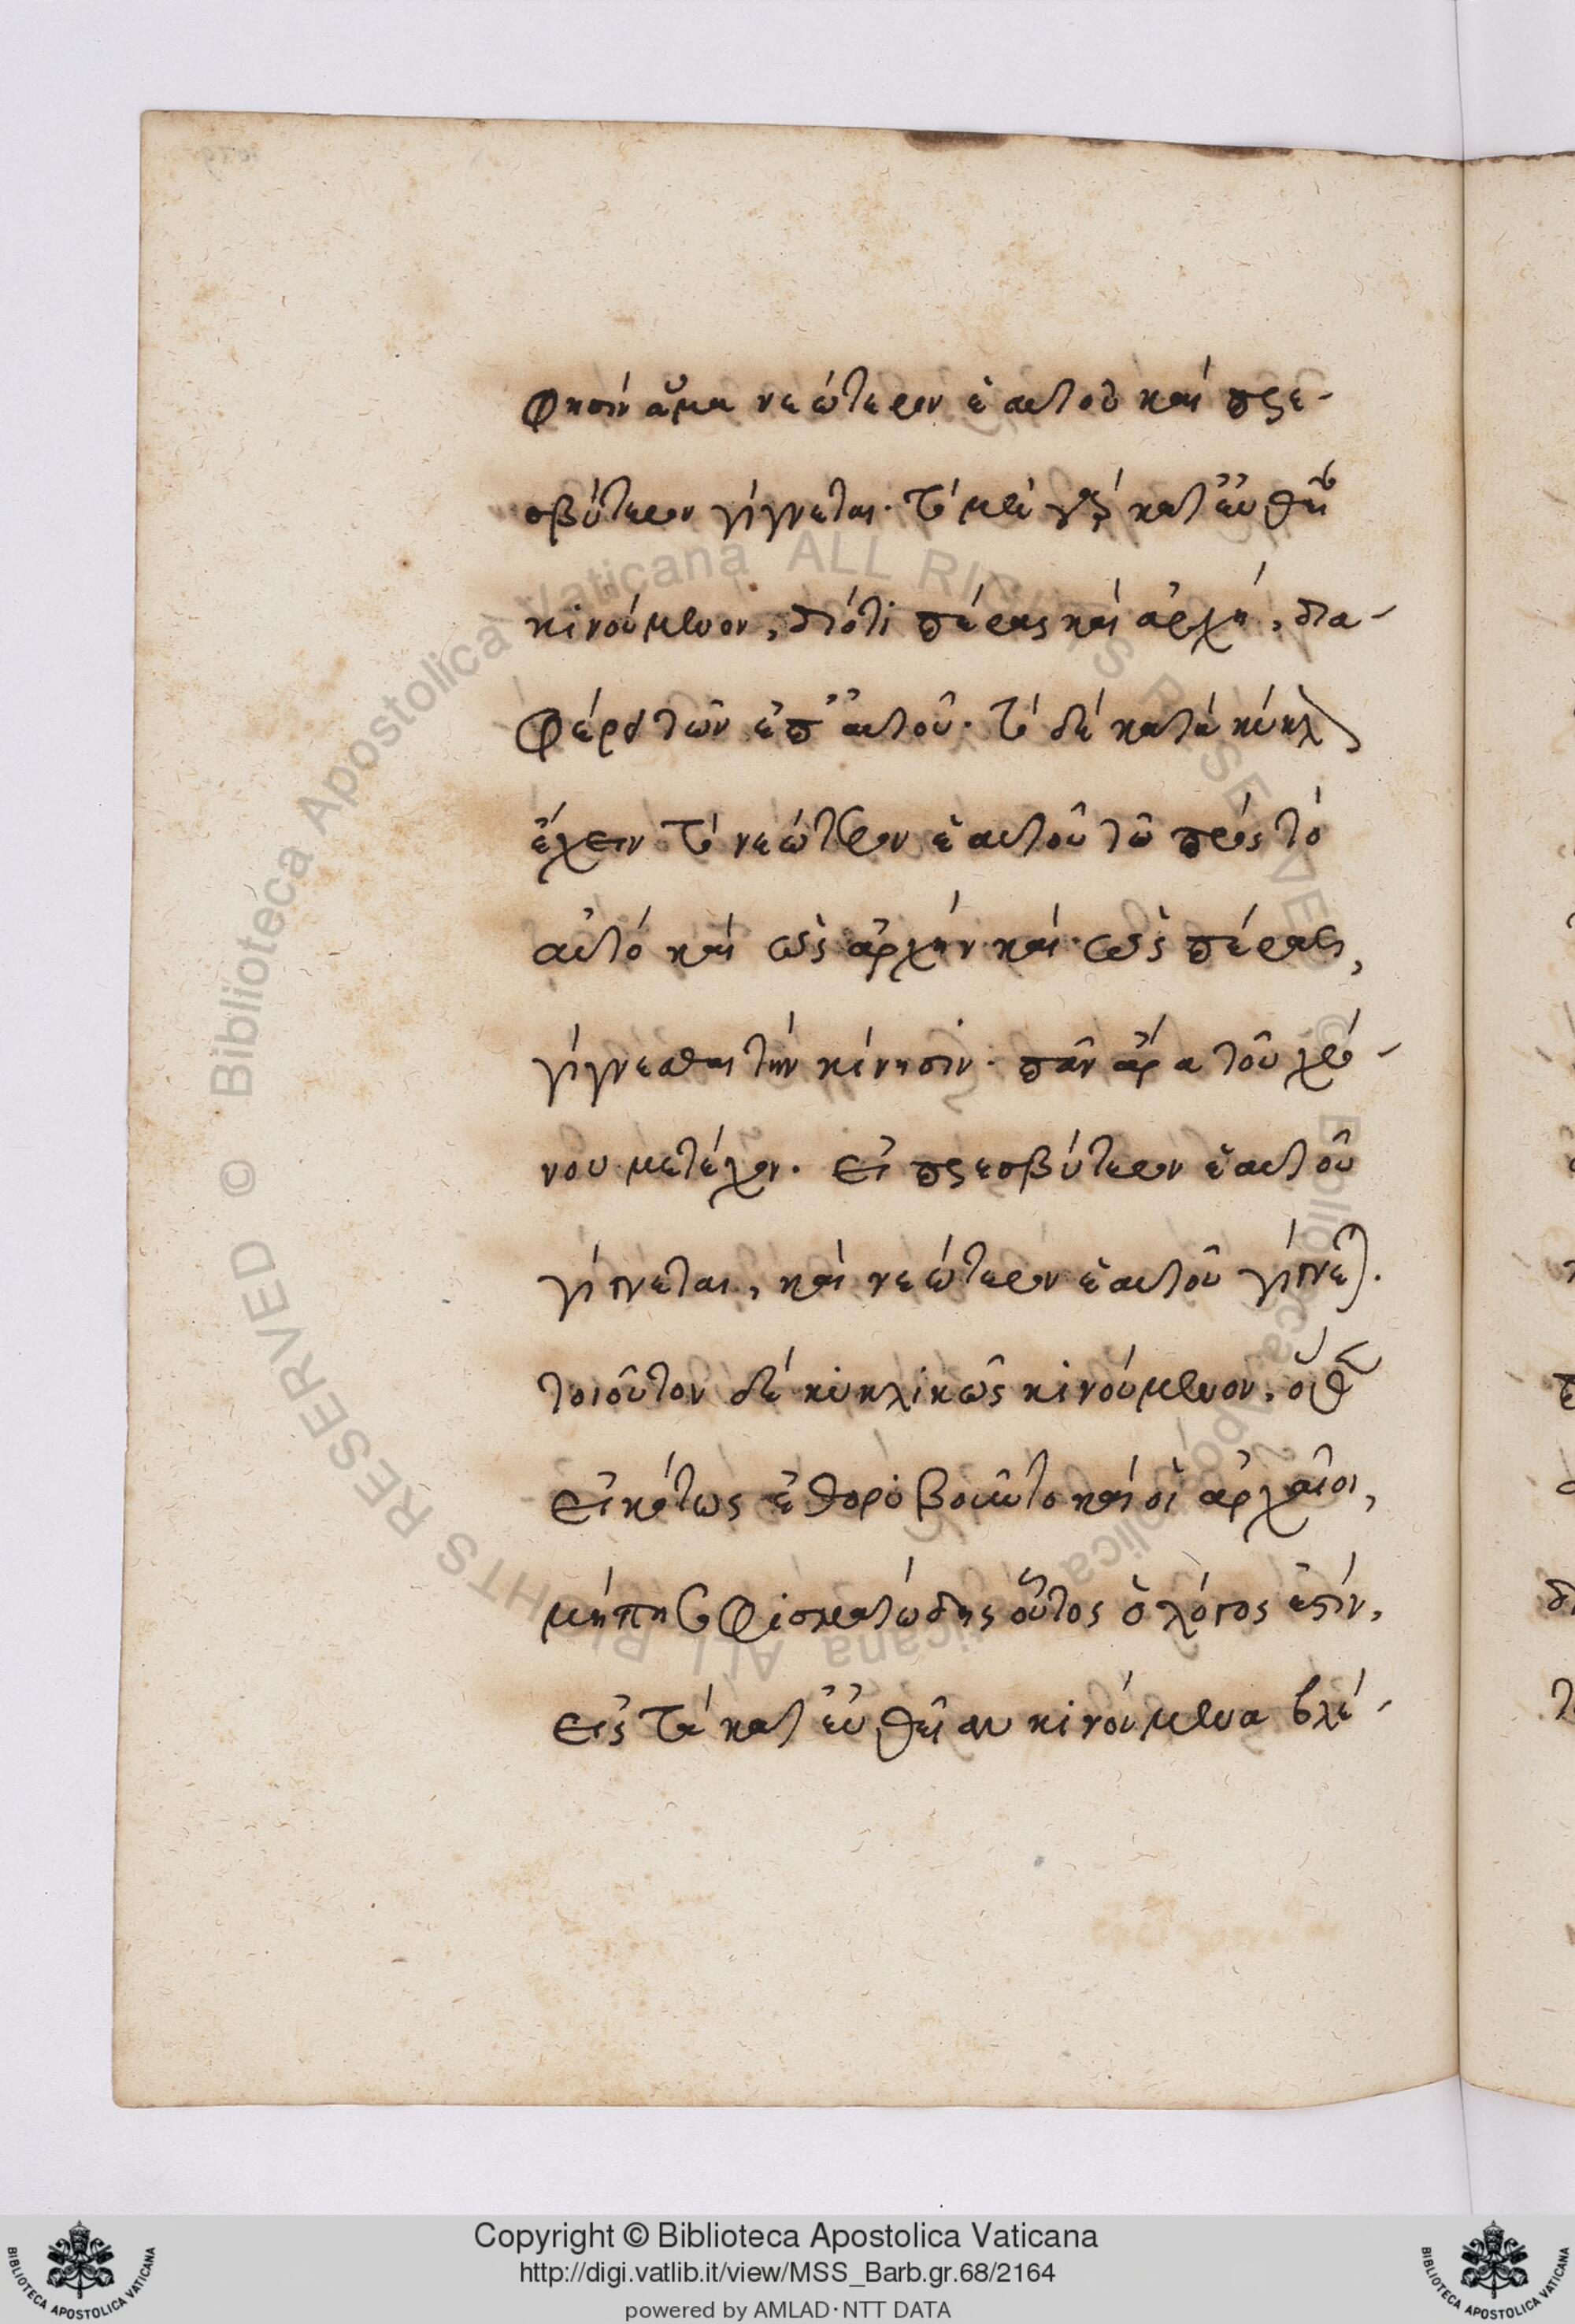 φησὶν ἅμα νεώτερον ἑαυτοῦ καὶ πρε-
σβύτερον γίγνεται· τὸ μὲν γὰρ κατ' εὐθεῖ
κινούμενον, διότι πέρας καὶ ἀρχὴ, δια-
φέρει τῶν ἐπ' αὐτοῦ· τὸ δὲ κατὰ κύκλ
ἔχειν τὸ νεώτερον ἑαυτοῦ τῶ πρὸς τὸ
αὐτὸ καὶ ὡς ἀρχὴν καὶ ὡς πέρας,
γίγνεσθαι τὴν κίνησιν· πᾶν ἄρα τοῦ χρό-
νου μετέχον. εἰ πρεσβύτερον ἑαυτοῦ
γίγνεται, καὶ νεώτερον ἑαυτοῦ γίγνεται.
τοιοῦτον δὲ κυκλικῶς κινούμενον. ὅθεν
εἰκότως ἐθορυβοῦντο καὶ οἱ ἀρχαῖοι,
μήπη σοφισματώδης οὗτος ὁ λόγος ἐστίν,
εἰς τὰ κατ' εὐθεῖαν κινούμενα βλέ-
Copyright © Biblioteca Apostolica Vaticana
http://digi.vatlib.it/view/MSS_Barb.gr.68/2164
powered by AMLAD·NTT DATA
BIBLIOTECA APOSTOLICA VATICANA
BIBLIOTECA APOSTOLICA VATICANA
© Biblioteca Apostolica Vaticana ALL RIGHTS RESERVED
© Biblioteca Apostolica Vaticana ALL RIGHTS RESERVED